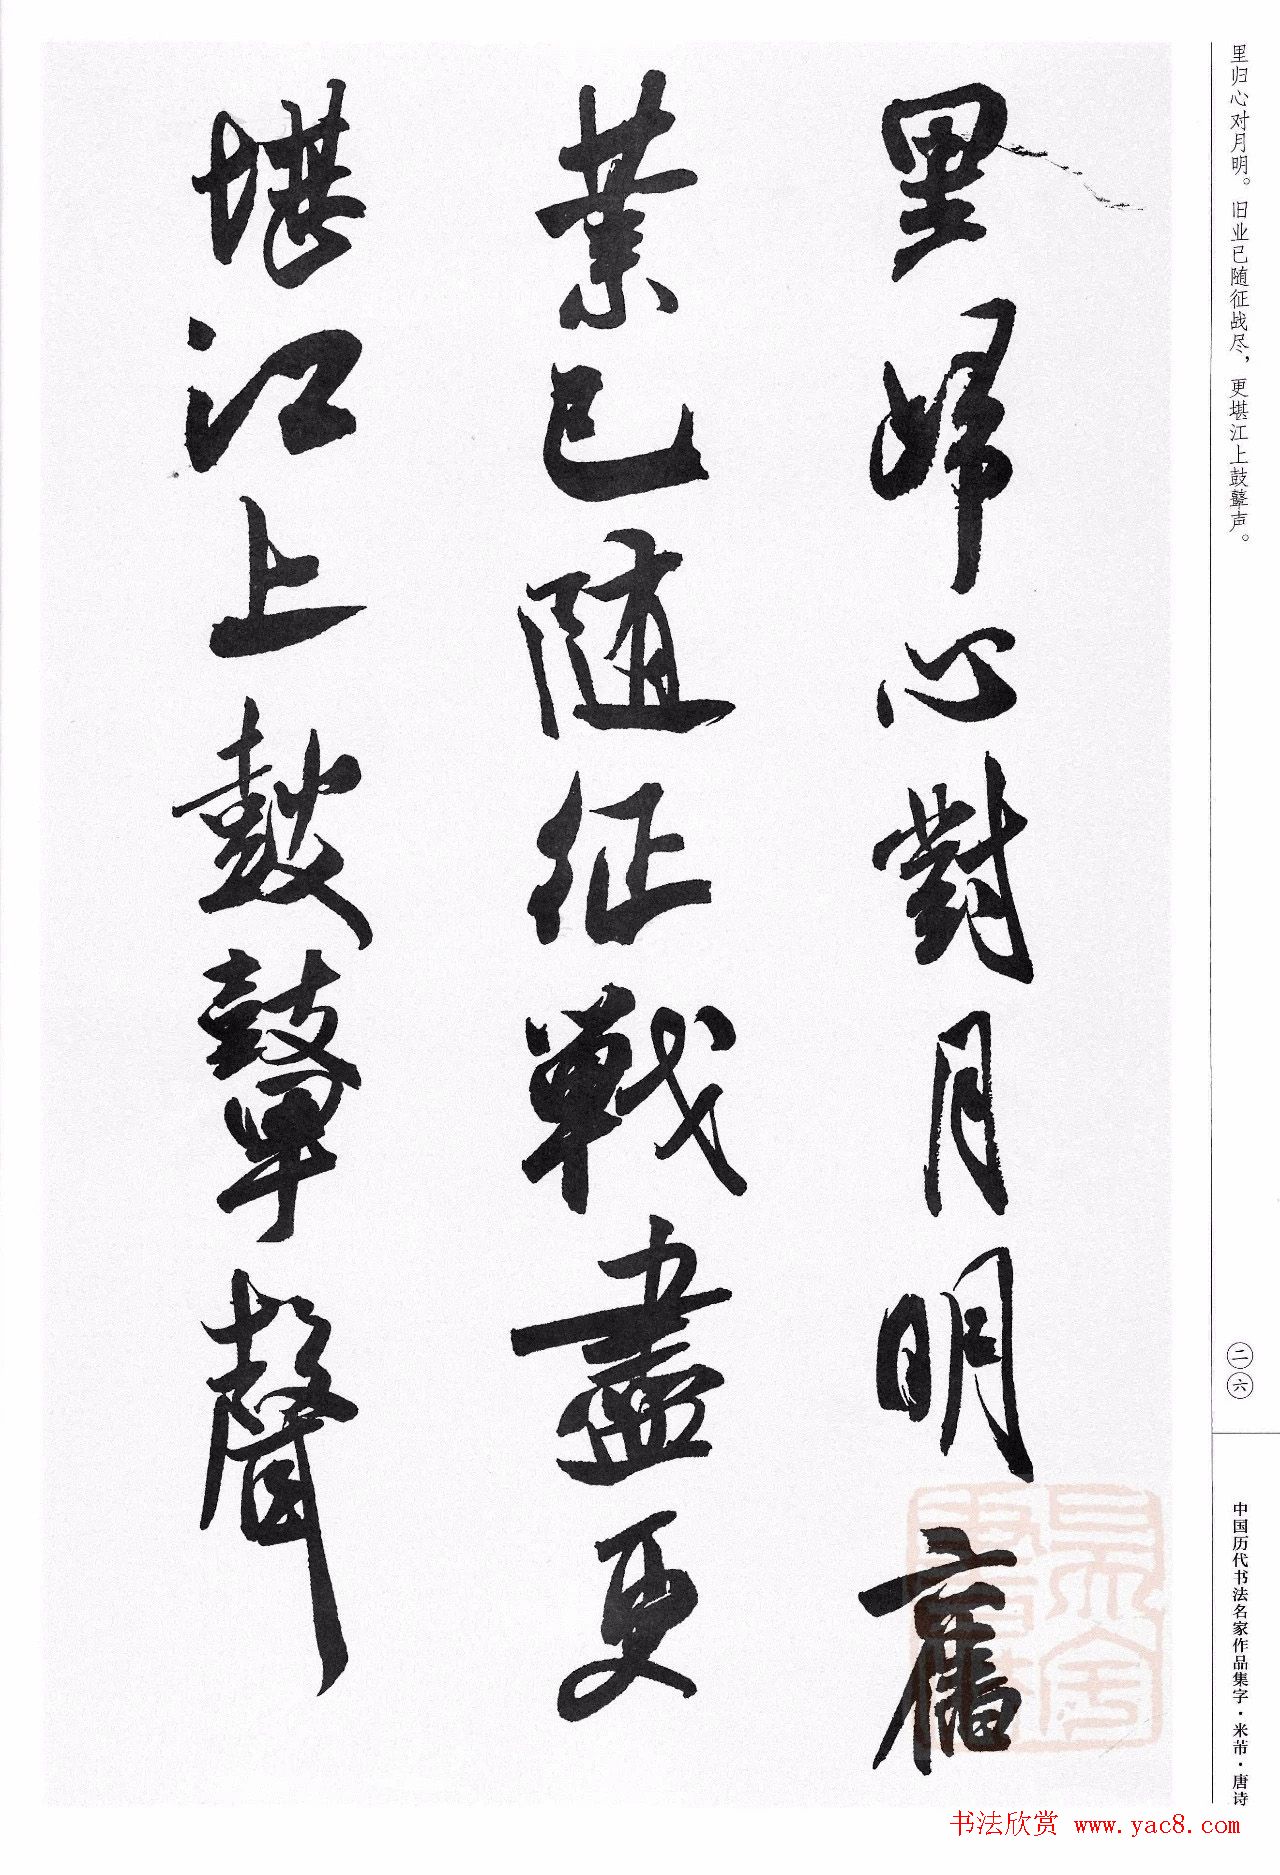 里归心对月明。旧业已随征战尽，更堪江上鼓鼙声。
里歸心對月明舊
業已随征戰盡更
堪江上鼓鼙聲
二六
中国历代书法名家作品集字·米芾·唐诗
书法欣赏 www.yac8.com